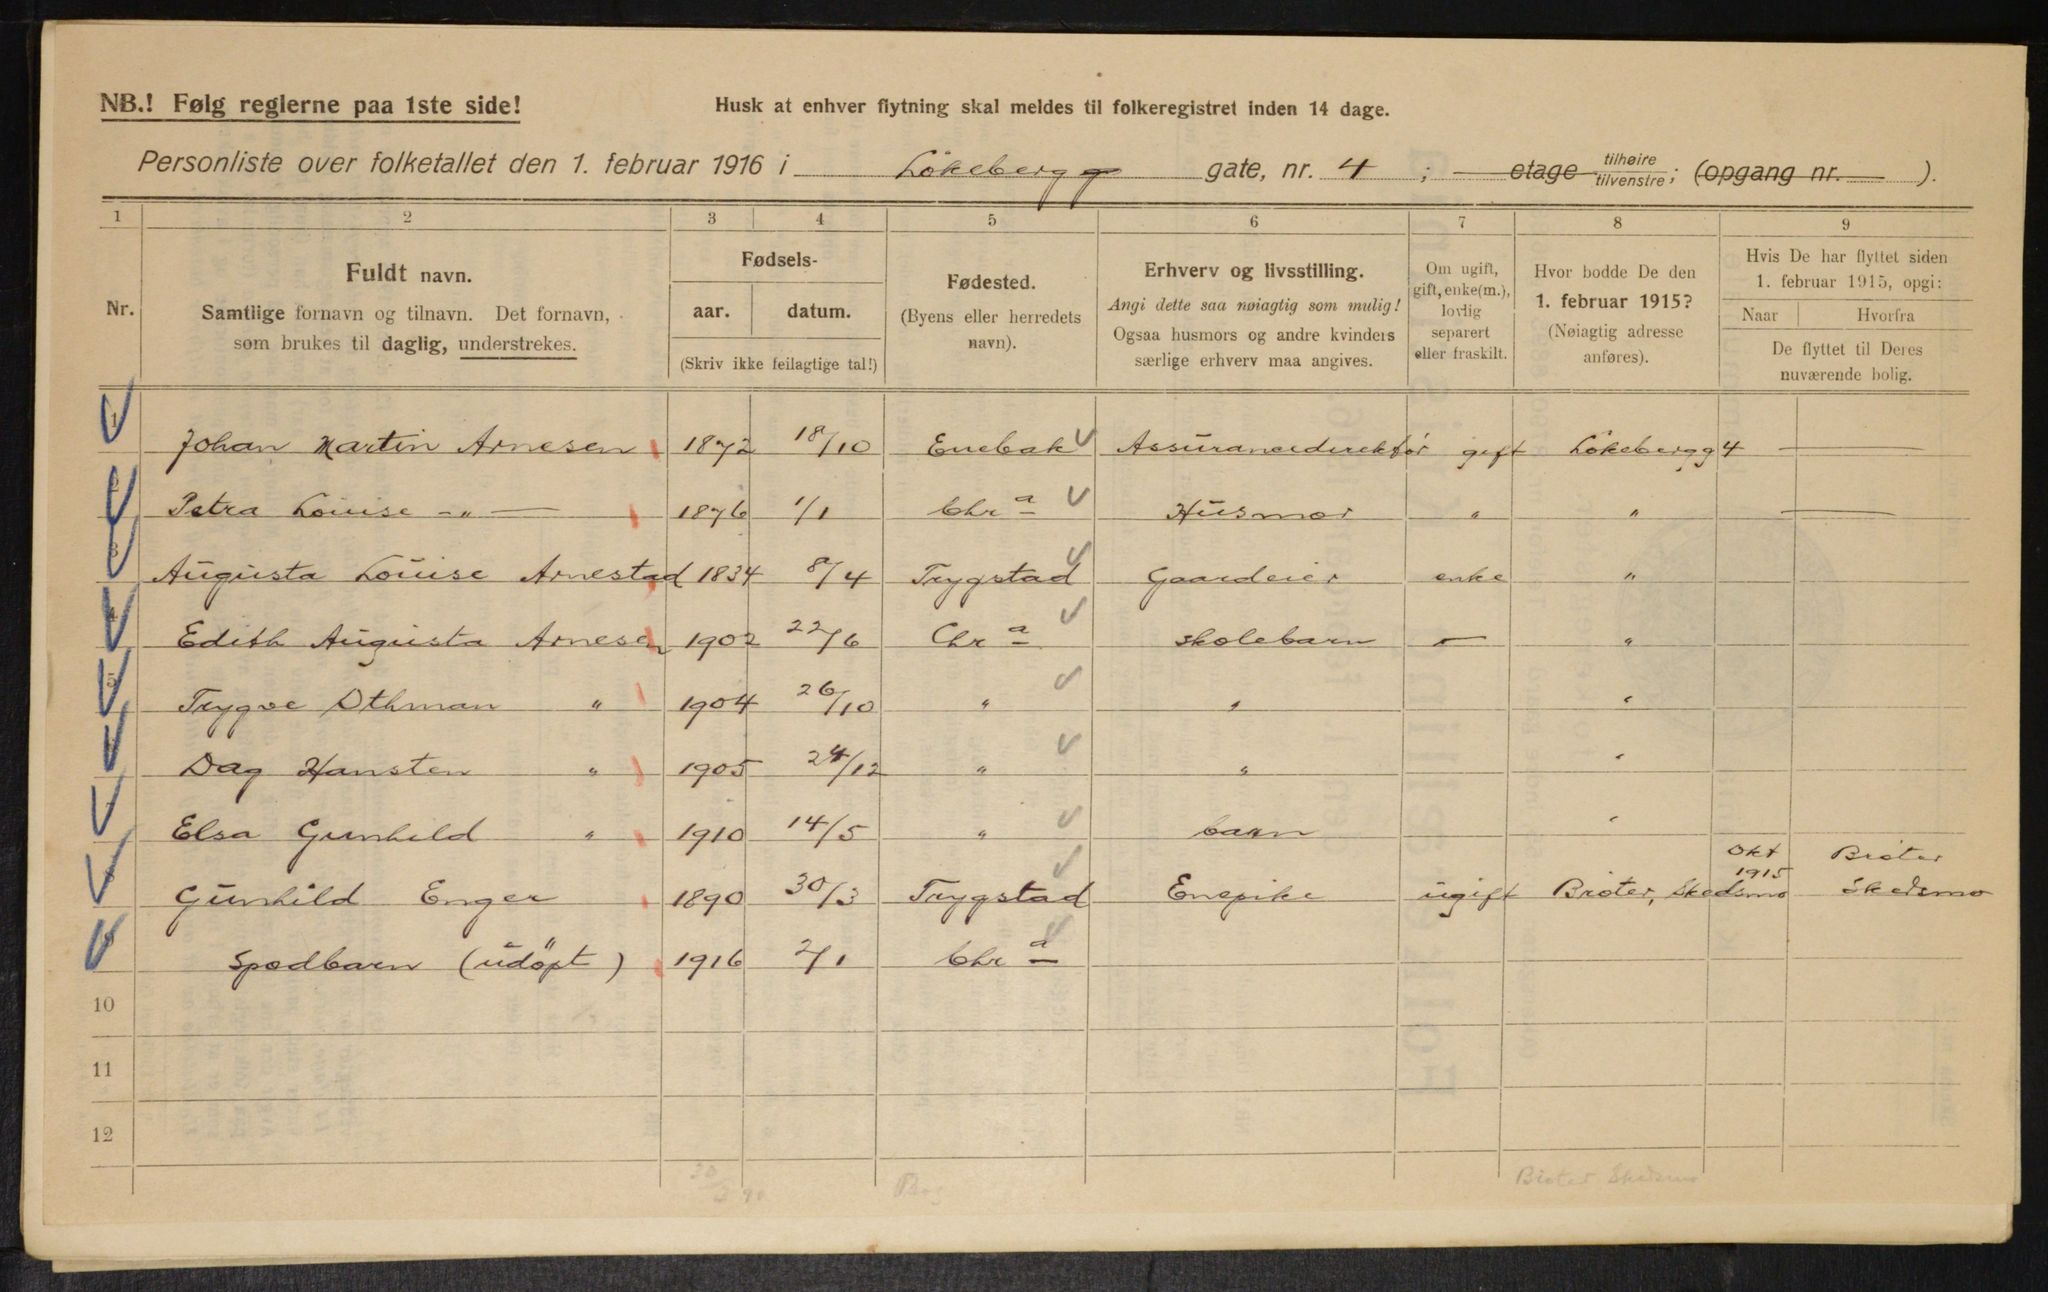 NB.! Følg reglerne paa 1ste side!
Husk at enhver flytning skal meldes til folkeregistret inden 14 dage.
Personliste over folketallet den 1. februar 1916 i Lökebergg gate, nr. 4 ; etage tilhøire tilvenstre; (opgang nr. ).
1 2 3 4 5 6 7 8 9
Nr.
Fuldt navn.
Samtlige fornavn og tilnavn. Det fornavn,
som brukes til daglig, understrekes.
Fødsels-
aar. datum.
(Skriv ikke feilagtige tal!)
Fødested.
(Byens eller herredets
navn).
Erhverv og livsstilling.
Angi dette saa nøiagtig som mulig!
Ogsaa husmors og andre kvinders
særlige erhverv maa angives.
Om ugift,
gift, enke(m.),
lovlig
separert
eller fraskilt.
Hvor bodde De den
1. februar 1915?
(Nøiagtig adresse
anføres).
Hvis De har flyttet siden
1. februar 1915, opgi:
Naar Hvorfra
De flyttet til Deres
nuværende bolig.
1 Johan Martin Arnesen 1872 18/10 Enebak Assurancedirektör gift Lökebergg 4 —
2 Petra Louise -„- — 1876 1/1 Chr a Husmor „ „ —
3 Augusta Louise Arnestad 1834 8/4 Trygstad Gaardeier enke „
4 Edith Augusta Arnesen 1902 22/6 Chr a Skolebarn — „
5 Trygve Othman „ 1904 26/10 „ „ „
6 Dag Hansten „ 1905 24/12 „ „ „
7 Elsa Gunhild „ 1910 14/5 „ barn „
8 Gunhild Enger 1890 30/3 Trygstad Enepike ugift Bröter, Skedsmo Okt 1915 Bröter Skedsmo
9 Spædbarn (udöpt) 1916 2/1 Chr a
10
11
12
30/3 90
Bröter Skedsmo